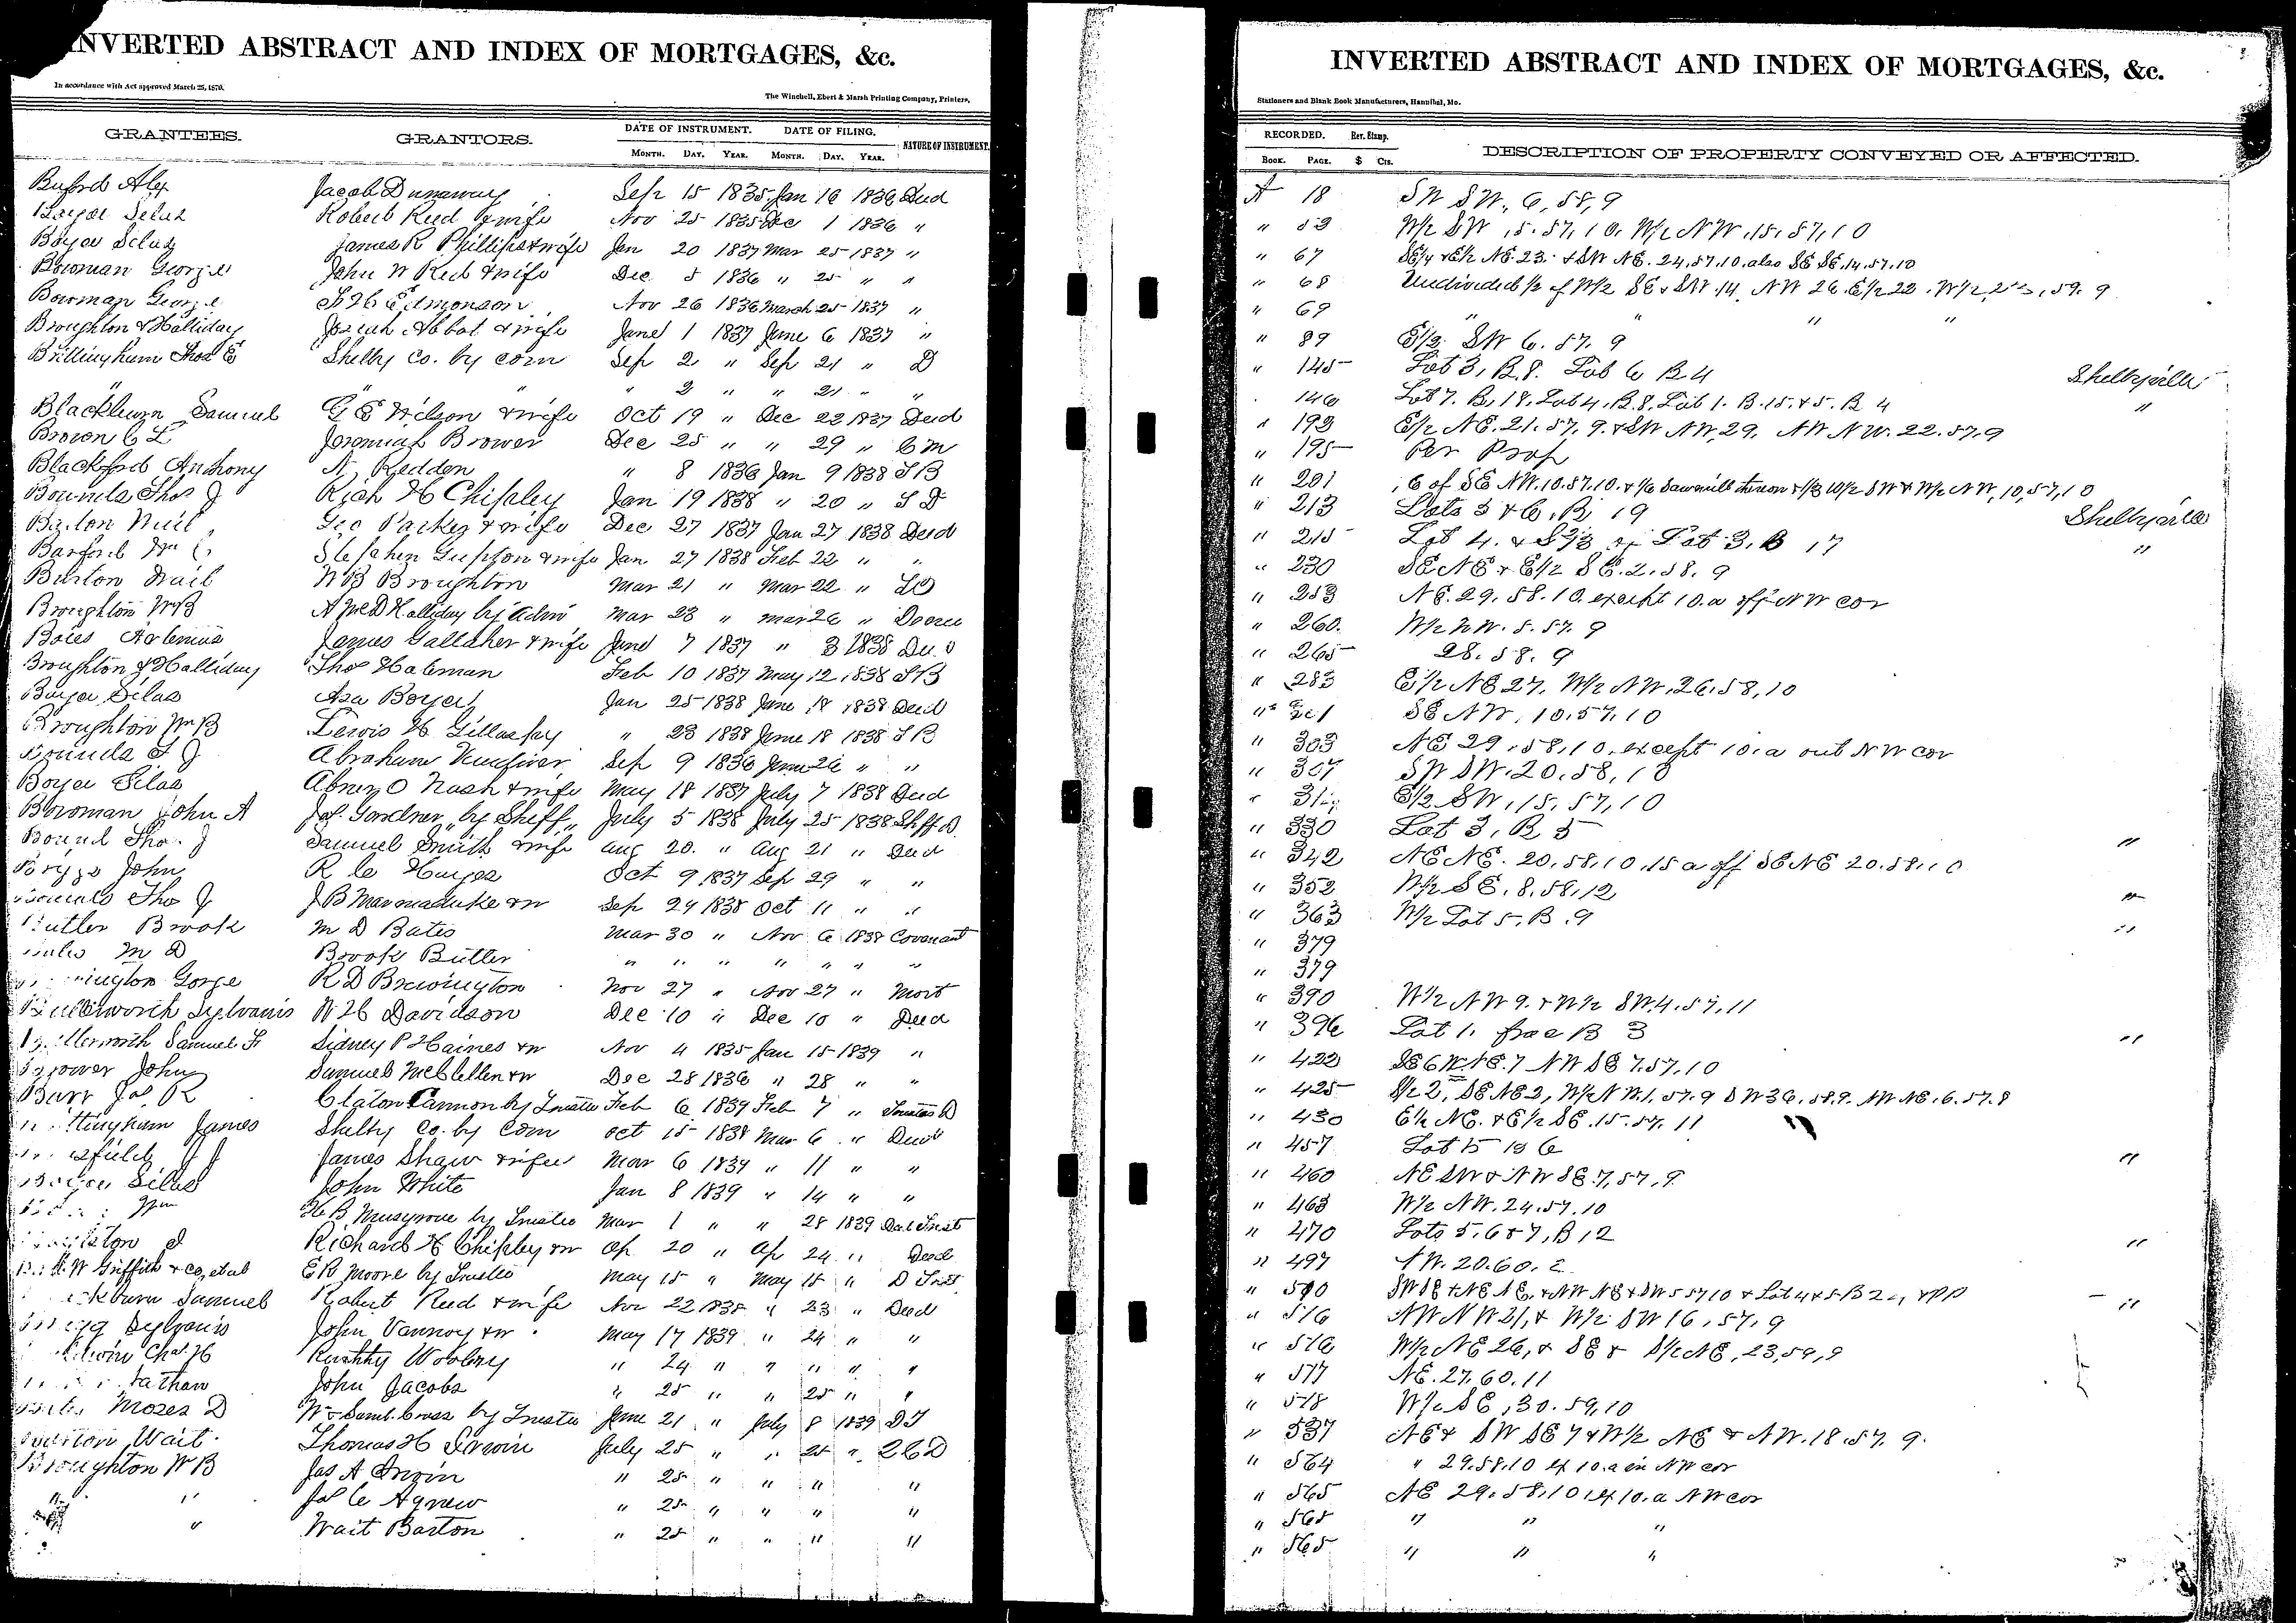 INVERTED ABSTRACT AND INDEX OF MORTGAGES, &c.
In accordance with Act approved March 25, 1870.
The Winchell, Ebert & Marsh Printing Company, Printers,
GRANTEES. GRANTORS. DATE OF INSTRUMENT. DATE OF FILING. NATURE OF INSTRUMENT.
MONTH. DAY. YEAR. MONTH. DAY. YEAR.
Buford Alex Jacob Dunaway Sep 15 1835 Jan 16 1836 Deed
Boyer Silas Robert Reed & wife Nov 25 1835 Dec 1 1836 "
Boyer Silas James R Phillips & wife Jan 20 1837 Mar 25 1837 "
Bowman George John W Reed & wife Dec 5 1836 " 25 " "
Bowman George Edmonson Nov 26 1836 March 25 1837 "
Broughton & Halliday Josiah Abbot & wife June 1 1837 June 6 1837 "
Brillingham Thos E Shelby Co. by com Sep 2 " Sep 21 " D
" " " " 2 " " 21 " "
Blackburn Samuel G E Wilson & wife Oct 19 " Dec 22 1837 Deed
Brown C L Jeremiah Brower Dec 25 " " 29 " C M
Blackford Anthony N. Redden " 8 1836 Jan 9 1838 T B
Bounds Thos J Rich H Chipley Jan 19 1838 " 20 " T D
Barton Geo Parker & wife Dec 27 1837 Jan 27 1838 Deed
Wm Stephen Gupton & wife Jan 27 1838 Feb 22 " "
Barton Wait W B Broughton Mar 21 " Mar 22 "
Broughton W B A McD Halliday by Adm Mar 23 " mar 26 " Decree
Bates Artemus James Gallaher & wife June 7 1837 " 3 1838 Deed
Broughton & Halliday Thos Hateman Feb 10 1837 May 12 1838 T B
Boyer Silas Asa Boyer Jan 25 1838 June 18 1838 Deed
Broughton Wm B Lewis H Gillaspy " 23 1838 June 18 1838 T B
Bounds T J Abraham Vandiver Sep 9 1836 June 26 " "
Boyer Silas Abner O Nash & wife May 18 1837 July 7 1838 Deed
Bowman John A Jas. Gardner by Sheff July 5 1838 July 25 1838 Shff D
Bound Thos. J Samuel Smith & wife Aug 20. " Aug 21 " Deed
John R C Hayes Oct 9 1837 Sep 29 " "
Bounds Thos J J B Marmaduke & w Sep 24 1838 Oct 11 " "
Butler Brook M D Bates Mar 30 " Nov 6 1838 Covenant
Bates M D Brook Butler " " " " " " "
Gorge R D Brewington Nov 27 " Nov 27 " Mort
Butterworth Sylvanis W H Davidson Dec 10 " Dec 10 " Deed
Butterworth Samuel F Sidney P Haines & w Nov 4 1835 Jan 15 1839 "
Brower John Samuel McClellen & w Dec 28 1836 " 28 " "
Barr Jas. R Claton Cannon by Trustee Feb 6 1839 Feb 7 " Trustees D
James Shelby Co. by Com Oct 15 1838 Mar 6 " Deed
J J James Shaw & wife Mar 6 1839 " 11 " "
Boyer Silas John White Jan 8 1839 " 14 " "
Wm H B Musgrove by Trustee Mar 1 " " 28 1839
Richard H Chipley & w Ap 20 " Ap 24 " Deed
W Griffith & Co, et al E R Moore by Trustee May 15 " May 15 " D Trst
Samuel Robert Reed & wife Nov 22 1838 " 23 " Deed
Sylvanis John Vannoy & w May 17 1839 " 24 " "
Chas. H " 24 " " " " "
Nathan John Jacobs " 25 " " 25 " "
Bates Moses D by Trustee June 21 " July 8 1839 D T
Barton Wait Thomas H Irwin July 25 " " 25 "
Broughton W B Jas A Irwin " 25 " " " "
" " Jas C Agnew " 25 " " " "
" Wait Barton " 25 " " " "
INVERTED ABSTRACT AND INDEX OF MORTGAGES, &c.
Stationers and Blank Book Manufacturers, Hannibal, Mo.
RECORDED. Rev. Stamp. DESCRIPTION OF PROPERTY CONVEYED OR AFFECTED.
BOOK. PAGE. $ Cts.
A 18 SW SW, 6, 58, 9
" 53 W/2 SW, 5. 57, 10, W/2 NW, 15, 57, 10
" 67 SE/4 & E/2 NE. 23. & SW NE. 24, 57, 10, also SE SE, 14, 57, 10
" 68 Undivided 1/2 of W/2 SE & SW. 14, NW 26. E/2 22, W/2, 23, 59. 9
" 69 " " " "
" 89 E/2. SW 6. 57. 9
" 145 Lot 3, B. 8. Lot 6 B 4 Shelbyville
146 Lot 7. B. 18. Lot 4. B. 8. Lot 1. B. 15. & 5. B 4 "
" 192 E/2 NE. 21. 57. 9. & SW NW, 29. NW NW. 22. 57. 9
" 195 Per Prop
" 201 of SE NW. 10. 57. 10. & 1/6 Sawmill thereon & 1/3 W/2 SW & W/2 NW, 10, 57, 10
" 213 Lots 3 & 6, B. 19 Shelbyville
" 215 Lot 4. & of Lot 3, B 17 "
" 230 SE NE & E/2 SE. 2. 58. 9
" 253 NE. 29. 58. 10. except 10. a off NW cor
" 260. W/2 NW. 5. 57. 9
" 265 28. 58. 9
" 283 E/2 NE 27. W/2 NW, 26, 58, 10
" 301 SE NW, 10. 57. 10
" 303 NE 29. 58, 10. except 10. a out NW cor
" 307 SW SW. 20. 58, 10
" E/2 SW, 15, 57, 10
" 330 Lot 3, B, 5 "
" 342 NE NE. 20. 58. 10. 15 a off SE NE 20. 58. 10
" 352 W/2 SE. 8. 58. 12 "
" 363 W/2 Lot 5. B. 9 "
" 379
" 379
" 390 W/2 NW 9. & W/2 SW. 4. 57. 11
" 396 Lot 1. frac B 3 "
" 422 NE. 7 NW SE 7. 57. 10
" 425 S/2 2, SE NE 2, W/2 NW. 1. 57. 9 SW 36. 58. 9. NW NE. 6. 57. 8
" 430 E/2 NE. & E/2 SE. 15. 57. 11
" 457 Lot 5 B 6 "
" 460 NE SW & NW SE. 7, 57, 9
" 463 W/2 NW. 24. 57. 10
" 470 Lots 5. 6 & 7, B, 12 "
" 497 NW. 20. 60. 2
" 510 SW SE & NE NE, & NW NE & SW 5 57 10 & Lot 4 & 5 B & PP "
" 516 NW NW 21, & W/2 SW 16, 57. 9
" 516 W/2 NE 26, & SE & S/2 NE, 23, 59, 9
" 517 NE. 27. 60. 11
" 518 W/2 SE, 30. 59, 10
" 537 NE & SW SE 7 & W/2 NE & NW. 18. 57. 9.
" 564 " 29. 58. 10 ex 10. a in NW cor
" 565 NE 29. 58. 10 ex 10. a NW cor
" 565 " " "
" 565 " " "